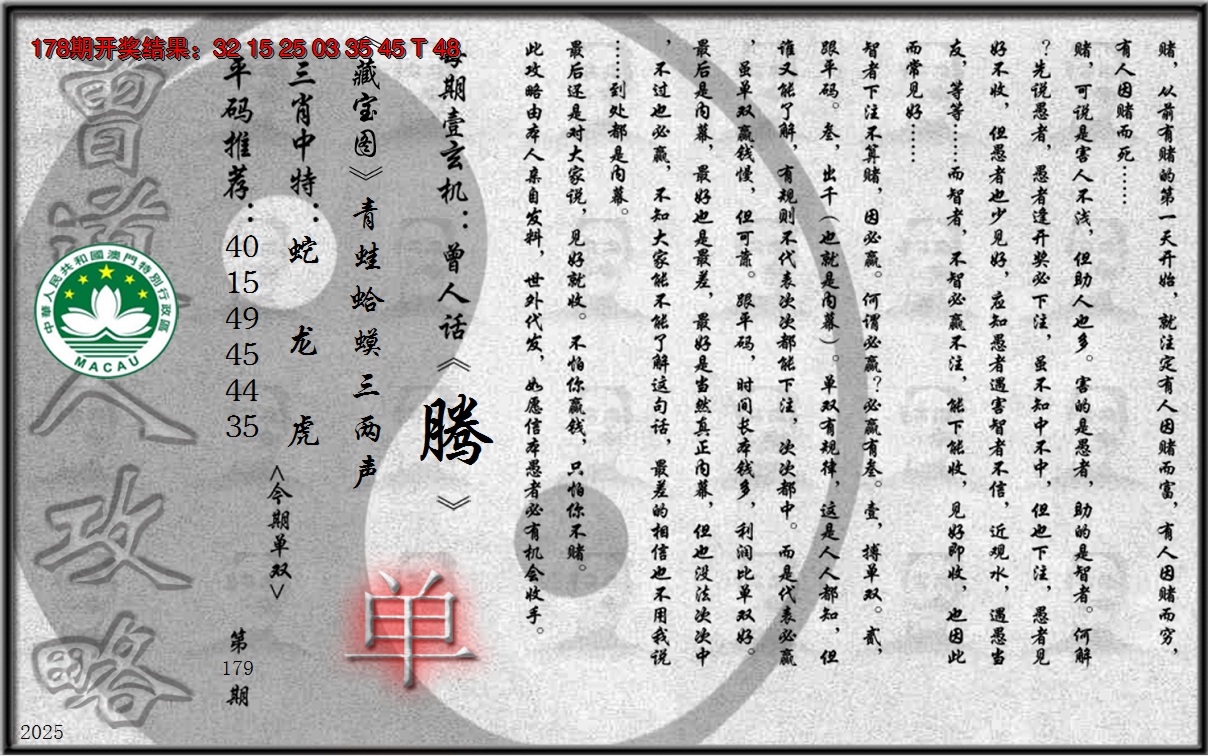 178期开奖结果：32 15 25 03 35 45 T 48
赌，从前有赌的第一天开始，就注定有人因赌而富，有人因赌而穷，
有人因赌而死……
赌，可说是害人不浅，但助人也多。害的是愚者，助的是智者。何解
？先说愚者，愚者逢开奖必下注，虽不知中不中，但也下注，愚者见
好不收，但愚者也少见好，应知愚者遇害智者不信，近观水，遇愚当
友，等等……而智者，不智必赢不注，能下能收，见好即收，也因此
而常见好……
智者下注不算赌，因必赢。何谓必赢？必赢有叁。壹，搏单双。贰，
跟平码。叁，出千（也就是内幕）。单双有规律，这是人人都知，但
谁又能了解，有规则不代表次次都能下注，次次都中。而是代表必赢
，虽单双赢钱慢，但可靠。跟平码，时间长本钱多，利润比单双好。
最后是内幕，最好也是最差，最好是当然真正内幕，但也没法次次中
，不过也必赢，不知大家能不能了解这句话，最差的相信也不用我说
……到处都是内幕。
最后还是对大家说，见好就收。不怕你赢钱，只怕你不赌。
此攻略由本人亲自发料，世外代发，如愿信本愚者必有机会收手。
每期壹玄机：曾人话《腾》
《藏宝图》青蛙蛤蟆三两声
单
三肖中特：蛇 龙 虎
<今期单双>
平码推荐：40 15 49 45 44 35
第179期
曾道人攻略
中華人民共和國澳門特別行政區
MACAU
2025